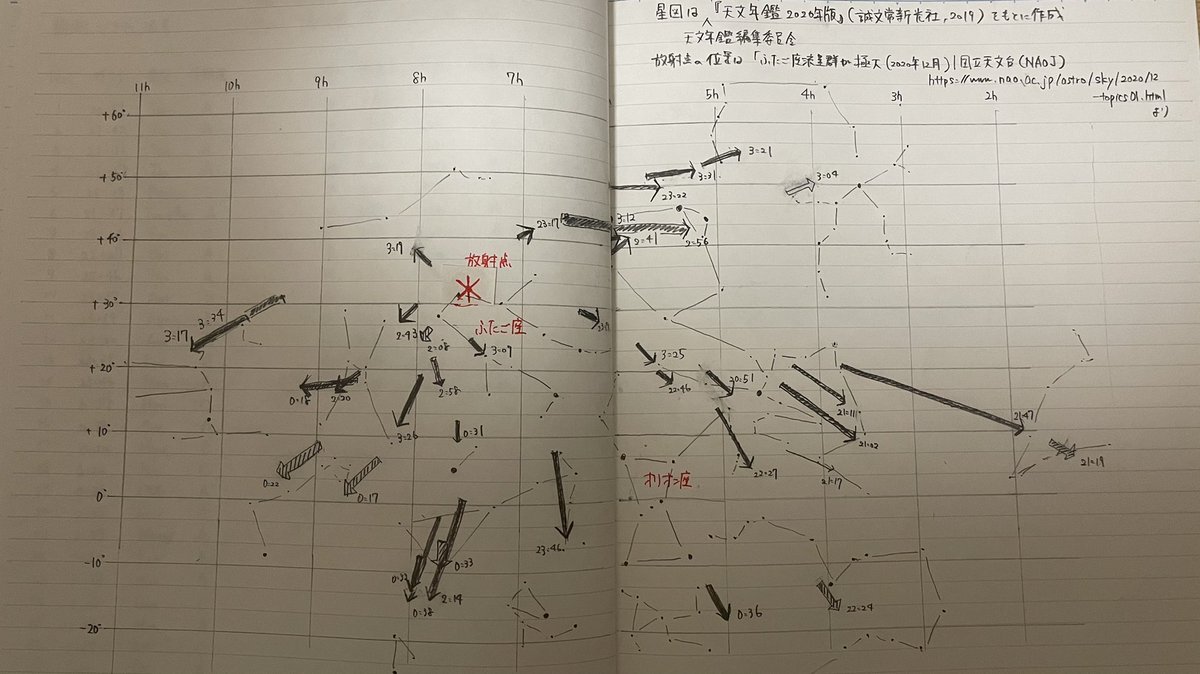 星図は『天文年鑑 2020年版』(誠文堂新光社, 2019)をもとに作成
天文年鑑編集委員会
放射点の位置は「ふたご座流星群が極大(2020年12月)|国立天文台(NAOJ)
https://www.nao.ac.jp/astro/sky/2020/12
-topics01.html
より
11h 10h 9h 8h 7h 5h 4h 3h 2h
+60°
3:21
+50° 3:31 3:04
23:22
23:17 3:12
+40° 2:41 2:56
3:19
放射点
+30°
3:34
3:17 ふたご座
2:08 3:09 3:25
+20° 22:46 20:51
0:18 2:20 2:58
21:11 21:47
+10° 3:26 0:31 21:02
21:19
0:22 22:27 21:17
0° 0:17 オリオン座
23:46
-10° 0:33
0:32 2:14
0:38 0:36 22:24
-20°